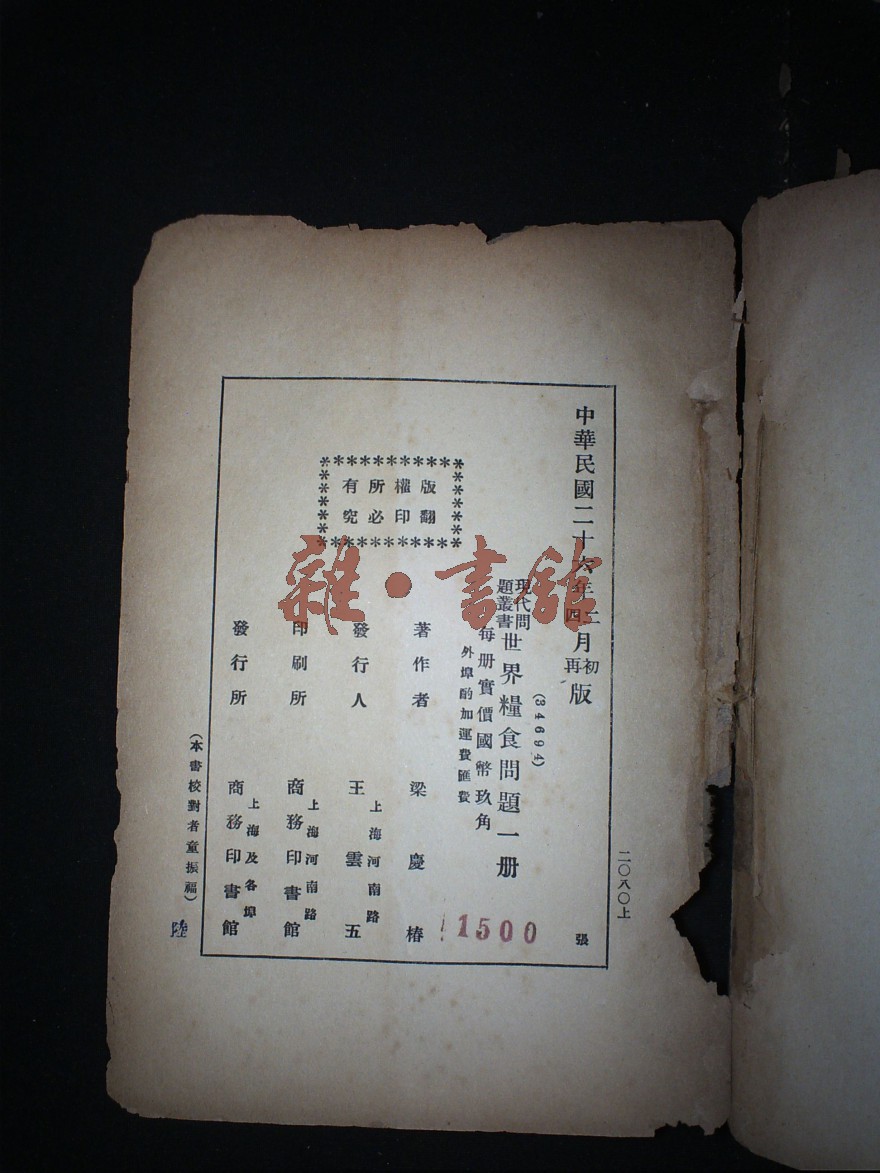 二〇八〇上
中華民國二十六年二月初版
四再
張
(34694)
現代問題叢書世界糧食問題一册
每册實價國幣玖角
外埠酌加運費匯費
1500
版權所有
翻印必究
著作者 梁慶椿
上海河南路
發行人 王雲五
上海河南路
印刷所 商務印書館
上海及各埠
發行所 商務印書館
(本書校對者童振福)
陸
雜·書館